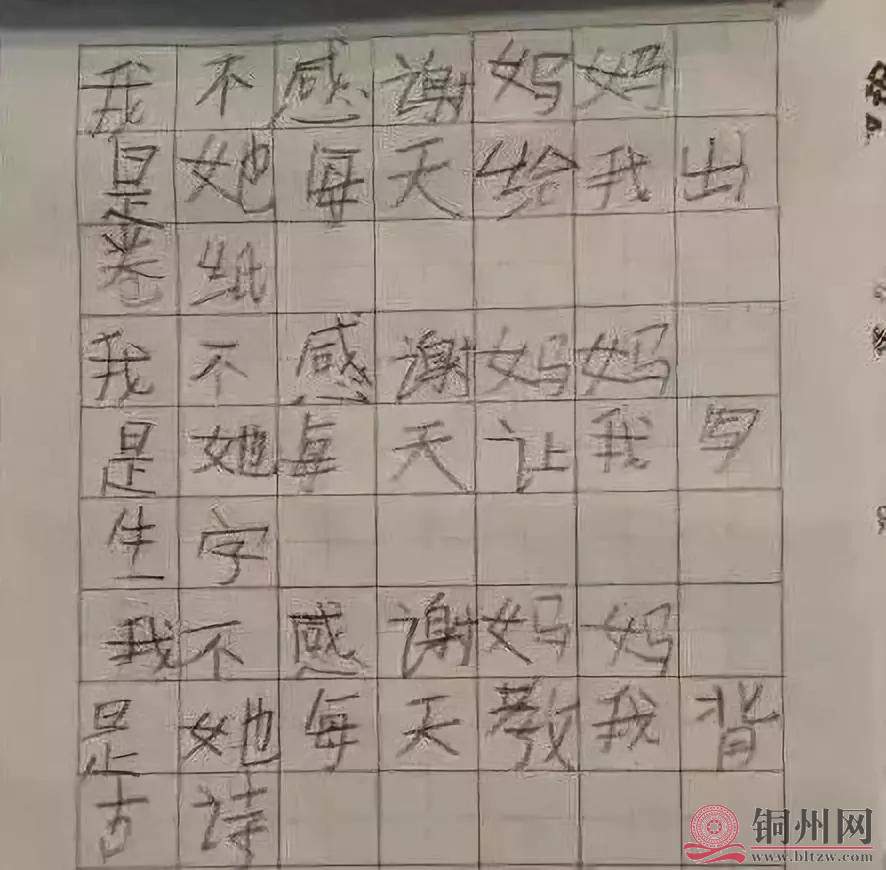 我不感谢妈妈
是她每天给我出
卷纸
我不感谢妈妈
是她每天让我写
生字
我不感谢妈妈
是她每天教我背
古诗
铜州网
www.bltzw.com